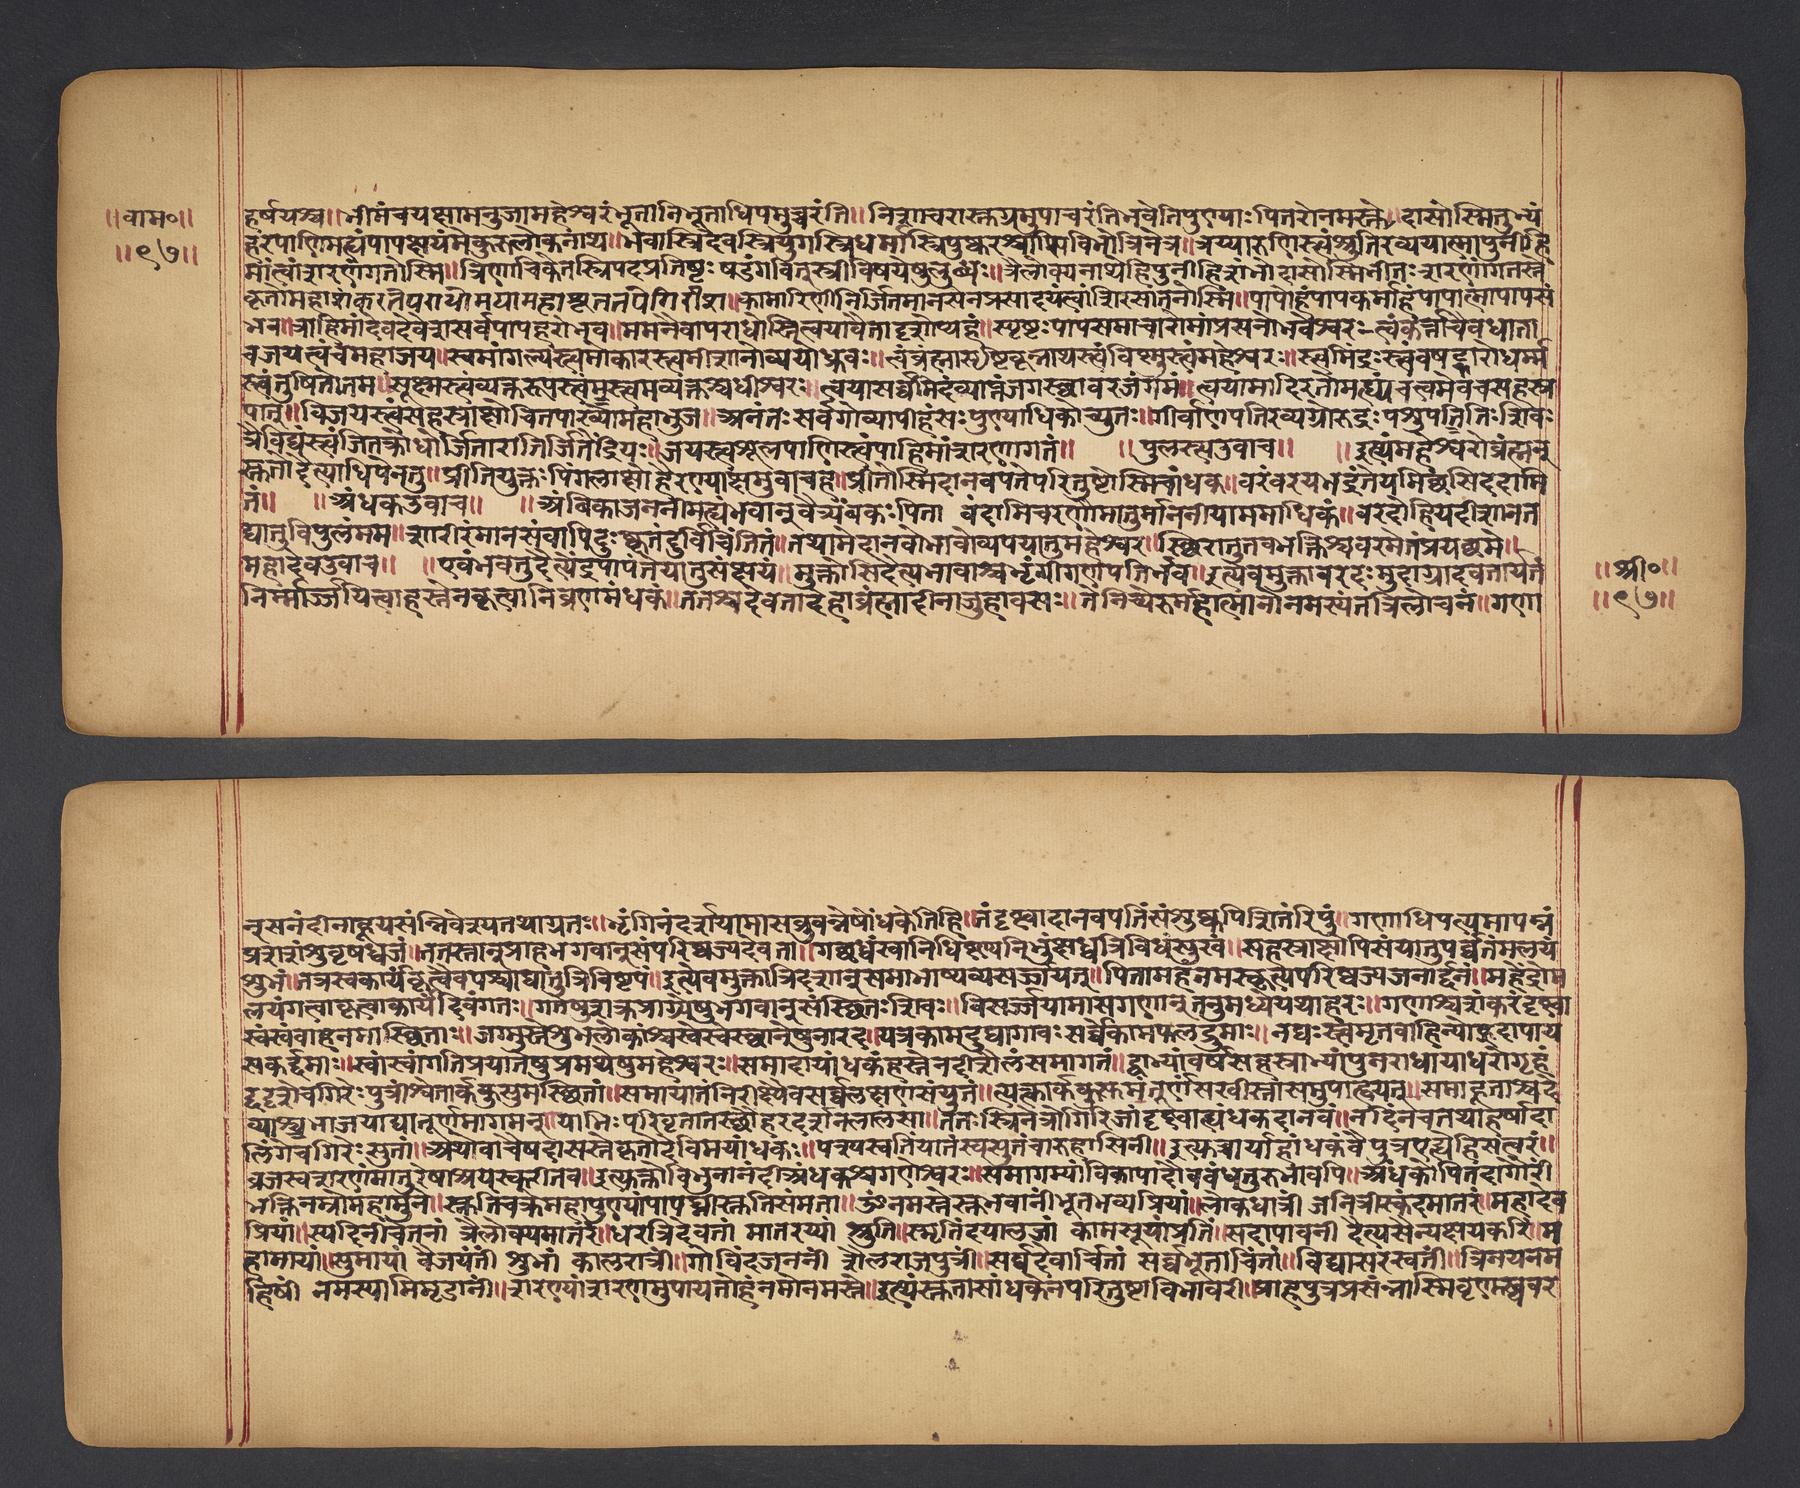 ॥वाम०॥
॥९७॥
हर्षयश्च॥भीमंचयक्षामनुजामहेश्वरंभूतानिभूताधिपमुच्चरंति॥निशाचरास्तूग्रमुपाचरंतिभवेतिपुण्याःपितरोनमस्ते॥दासोस्मितुभ्यं
हरपाहिमह्यंपापक्षयंमेकुरुलोकनाथ॥भवांस्त्रिदेवस्त्रियुगस्त्रिधर्मास्त्रिपुष्करश्चासिविभोत्रिनेत्र॥त्रय्यारुणिस्त्वंश्रुतिरव्ययात्मापुनीहि
मांत्वांशरणंगतोस्मि॥त्रिणाचिकेतस्त्रिपदप्रतिष्ठःषडंगवित्स्त्रीविषयेषुलुब्धः॥त्रैलोक्यनाथोसिपुनीहिशंभोदासोस्मिभीतःशरणागतस्ते
कृतोमहाशंकरतेपराधोमयामहाभूतपतेगिरीश॥कामारिणानिर्जितमानसेनप्रसादयेत्वांशिरसानतोस्मि॥पापोहंपापकर्माहंपापात्मापापसं
भव॥त्राहिमांदेवदेवेशसर्वपापहरोभव॥ममनैवापराधोस्तित्वयाचैतादृशोप्यहं॥स्पृष्टःपापसमाचारोमांप्रसन्नोभवेश्वरः॥त्वंकर्त्ताचैवधाता
चजयत्वंचमहाजय॥त्वमांगल्यंत्वमोंकारस्त्वमीशानोव्ययोध्रुवः॥त्वंब्रह्मासृष्टिकृन्नाथस्त्वंविष्णुस्त्वंमहेश्वरः॥त्वमिंद्रःस्त्वंवषट्कारोधर्म्म
स्त्वंतुषितोतम॥सूक्ष्मस्त्वंव्यक्तरूपस्त्वंमुस्त्वमव्यक्तश्चधीश्वरः॥त्वयासर्व्वमिदंव्याप्तंजगत्स्थावरजंगमं॥त्वयामादिरंतोमध्यंचत्वमेवचसहस्र
पात्॥विजयस्त्वंसहस्राक्षोचितपाख्योमहाभुज॥अनंतःसर्वगोव्यापीहंसःपुण्याधिकोच्युतः॥गीर्वाणपतिरव्यग्रोरुद्रःपशुपतिःशिवः
त्रैविद्यस्त्वंजितक्रोधोर्जितारातिर्जितेंद्रियः॥जयस्वशूलपाणिस्त्वंपाहिमांशरणागतं॥ ॥पुलस्त्यउवाच॥ ॥इत्थंमहेश्वरोब्रह्मन्
स्तुतोदैत्याधिपेनतु॥प्रीतियुक्तःपिंगलाक्षोहैरण्याक्षमुवाचह॥प्रीतोस्मिदानवपतेपरितुष्टोस्मिचांधक॥वरंवरयभद्रंतेयमिच्छसिददामि
तं॥ ॥अंधकउवाच॥ ॥अंबिकाजननीमह्यंभवान्वैत्र्यंबकःपिता वंदामिचरणौमातुर्माननीयामममाधिकं॥वरदोहियदीशानत
द्यातुविपुलंमम॥शारीरंमानसंवापिदुःकृतंदुर्विचिंतितं॥तथामेदानवोभावोव्यपयातुमहेश्वर॥स्थिरास्तुतवभक्तिश्चवरमेतंप्रयच्छमे॥
महादेवउवाच॥ ॥एवंभवतुदैत्येंद्रपापंतेयातुसंक्षयं॥मुक्तोसिदैत्यभावाच्चभृंगीगणपतिर्भव॥इत्येवमुक्तावरदःमुदाग्रादवतार्यतं
निर्म्मार्ज्जयित्वाहस्तेनकृत्वानिर्व्रणमंधकं॥ततश्चदेवतादेहाब्रह्मादीनाजुहावसः॥तेनिश्चेरुर्महात्मानोनमस्यंतत्रिलोचनं॥गणा
॥श्री०॥
॥९७॥
न्सनंदीनाहूयसंनिवेश्यतथाग्रतः॥भृंगिनंदर्शयामासब्रुवन्नेषोंधकेतिहि॥तंदृष्ट्वादानवपतिंसंशुष्कपिशितंरिपुं॥गणाधिपत्यमापन्नं
प्रशशंशुवृषध्वजं॥ततस्तान्प्राहभगवान्संपरिष्वज्यदेवता॥गच्छध्वंस्वानिधिष्ण्यनिभुंक्षध्वंत्रिविधंसुखं॥सहस्राक्षोपिसंयातुपर्व्वतंमलयं
शुभं॥तत्रस्वकार्यंकृत्वैवपश्चाद्यातुत्रिविष्टपं॥इत्येवमुक्तात्रिदशान्समाभाष्यव्यसर्ज्जयत्॥पितामहंनमस्कृत्यपरिष्वज्यजनार्द्दनं॥महेंद्रोम
लयंगत्वाकृत्वाकार्यंदिवंगतः॥गतेषुशक्रप्राग्र्येषुभगवान्संस्थितःशिवः॥विसर्ज्जयामासगणान्तनुमध्यययाहरः॥गणाश्चशंकरंदृष्ट्वा
स्वंस्वंवाहनमास्थिताः॥जग्मुस्तेशुभलोकांश्चस्वेस्वेस्थानेषुनारद॥यत्रकामदुघागावःसर्व्वेकामफलद्रुमाः॥नद्यःस्त्वमृतवाहिन्योह्रदापाय
सकर्द्दमाः॥स्वांस्वांगतिंप्रयातेषुप्रमथेषुमहेश्वरः॥समादायांधकंहस्तेनंदीशैलंसमागतं॥द्वाभ्यांवर्षसहस्राभ्यांपुनराधायाधरोगृहं
ददृशेचगिरेःपुत्रींश्वेतार्ककुसुमस्थितां॥समायातंनिरीक्ष्यैवसर्व्वलक्षणसंयुतं॥त्यत्कार्ककुसुमंतूर्णंसखीस्तांसमुपाह्वयत्॥समाहूताश्चदे
व्याश्चुभाजयाद्यातूर्णमागमन्॥याभिःपरिवृतातस्थौहरदर्शनलालसा॥ततःस्त्रिनेत्रोगिरिजांदृष्ट्वात्वंधकदानवं॥नंदिनंचतथाहर्षादा
लिंगचगिरेःसुतां॥अथोवाचैषदासस्तेकृतोदेविमयांधकः॥पश्यस्वप्रतियातंस्वसुतंचारुहासिनी॥इत्युच्चार्याहांधकंवैपुत्रएह्येहिसत्वरं॥
व्रजस्वशरणंमातुरेषाश्रेयस्करीतव॥इत्युक्तोविभुनानंदीअंधकश्चगणेश्वरः॥समागम्यांबिकापादौववंधतुरुभावपि॥अंधकोपितदागौरीं
भक्तिनम्रोमहामुने॥स्तुतिंचक्रेमहापुण्यांपापघ्नींस्तुतिसंमतां॥ॐनमस्तेस्तुभवानीभूतभव्यप्रियां॥लोकधात्री जनित्रींस्कंदमातरं॥महादेव
प्रियां॥स्यंदिनींचेतनां त्रैलोक्यमातरं॥धरत्रिंदेवतां मातरय्यां श्रुतिं॥स्मृतिंदयालज्जां कामसूयांप्रतिं॥सदापावनी दैत्यसैन्यक्षयकरिं॥म
हामायां॥सुमायां वैजयंतीं शुभां कालरात्रीं॥गोविंदजननी शैलराजपुत्रीं॥सर्व्वदेवार्चितां सर्व्वभूतार्चितां॥विद्यासरस्वतीं॥त्रिनयनम
हिषी नमस्यामिमृडानीं॥शरण्यांशरणमुपायतोहंनमोनमस्ते॥इत्थंस्तुतासांधकेनपरितुष्टाविभावरी॥प्राहपुत्रप्रसन्नास्मिवृणुष्ववर